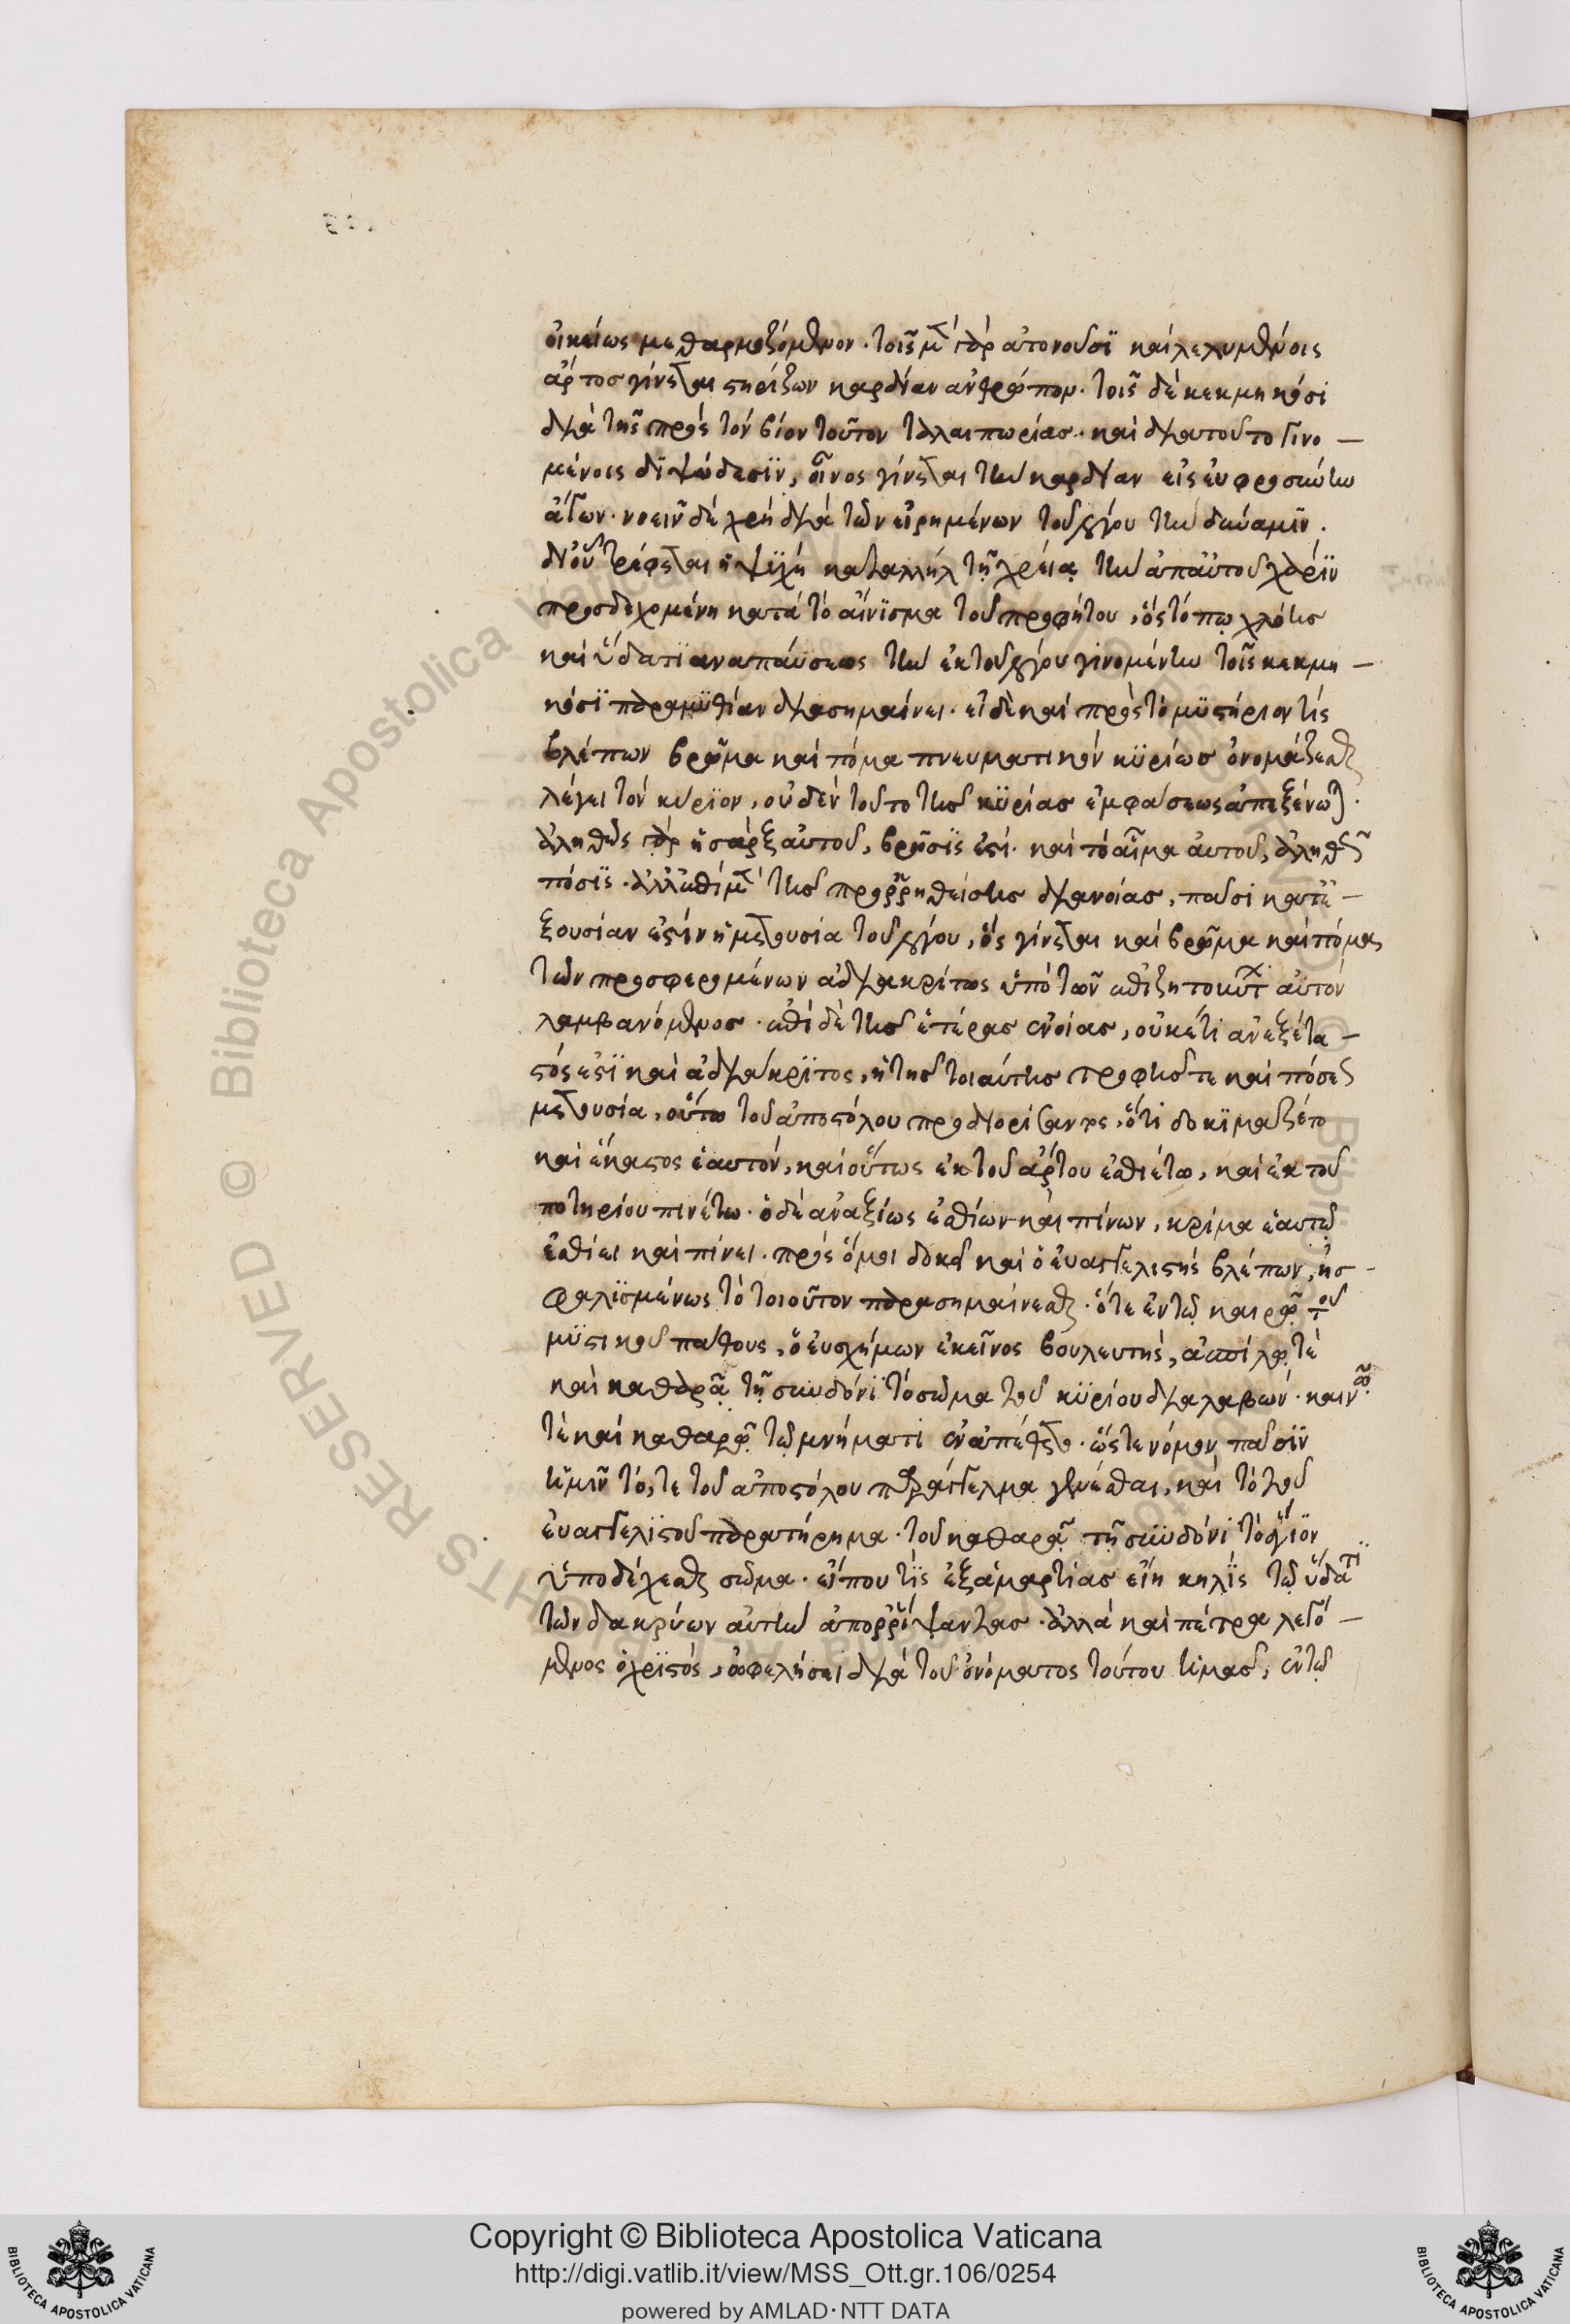 οἰκείως μεθαρμοζόμενον · τοῖς μὲν γὰρ ἀτονοῦσϊ καὶ λελυμένοις
ἄρτος γίνεται στηρίζων καρδίαν ἀνθρώπου · τοῖς δὲ κεκμηκόσι
διὰ τῆς πρὸς τὸν βίον τοῦτον ταλαιπωρίας · καὶ διατοῦτο γινο –
μένοις διψώδεσϊν, οἶνος γίνεται τὴν καρδίαν εἰς εὐφροσύνην
ἄγων · νοεῖν δὲ χρὴ διὰ τῶν εἰρημένων τοῦ λόγου τὴν δύναμϊν .
δι' οὗ τρέφεται ἡ ψϋχὴ καταλλήλ τῇ χρείᾳ τὴν ἀπ' αὐτοῦ χάρϊν
προσδεχομένη κατὰ τὸ αἴνϊσμα τοῦ προφήτου, ὃς τόπῳ χλόης
καὶ ὕδατϊ ἀναπαύσεως τὴν ἐκ τοῦ λόγου γϊνομένην τοῖς κεκμη –
κόσϊ παραμϋθίαν διασημαίνει · εἰ δὲ καὶ πρὸς τὸ μϋστήριόν τις
βλέπων βρῶμα καὶ πόμα πνευματικὸν κϋρίως ὀνομάζεσθαι
λέγει τὸν κύρϊον, οὐδὲν τοῦτο τῆς κϋρίας ἐμφάσεως ἀπεξένωται ·
ἀληθὴς γὰρ ἡ σὰρξ αὐτοῦ, βρῶσϊς ἐστί · καὶ τὸ αἷμα αὐτοῦ, ἀληθὴς
πόσϊς · ἀλλ' ἐπὶ μὲν τῆς προῤῥηθείσης διανοίας, πᾶσι κατὲ –
ξουσίαν ἐστὶν ἡ μετουσία τοῦ λόγου, ὃς γίνεται καὶ βρῶμα καὶ πόμα,
τῶν προσφερομένων ἀδιακρίτως ὑπὸ τῶν ἐπιζητούντων αὐτὸν
λαμβανόμενος · ἐπὶ δὲ τῆς ἑτέρας ἐννοίας, οὐκέτι ἀνεξέτα –
στός ἐστϊ καὶ ἀδιάκρϊτος, ἡ τῆς τοιαύτης τροφῆς τε καὶ πόσεως
μετουσία, οὕτω τοῦ ἀποστόλου προδιορίσαντος, ὅτι δοκϊμαζέτω
καὶ ἕκαστος ἑαυτόν, καὶ οὕτως ἐκ τοῦ ἄρτου ἐσθιέτω, καὶ ἐκ τοῦ
ποτηρίου πινέτω · ὁ δὲ ἀναξίως ἐσθίων καὶ πίνων, κρίμα ἑαυτῷ
ἐσθίει καὶ πίνει · πρὸς ὅ μοι δοκεῖ καὶ ὁ εὐαγγελιστὴς βλέπων, ἠσ –
φαλϊσμένως τὸ τοιοῦτον παρασημαίνεσθαι · ὅτε ἐν τῷ καιρῷ τοῦ
μϋστικοῦ πάθους, ὁ εὐσχήμων ἐκεῖνος βουλευτής, ἀσπίλῳ τὲ
καὶ καθαρᾷ τῇ σινδόνϊ τὸ σῶμα τοῦ κϋρίου διαλαβών · καινῷ
τὲ καὶ καθαρῷ τῷ μνήματι ἐναπέθετο · ὥστε νόμον πᾶσϊν
ἡμῖν τό, τε τοῦ ἀποστόλου παράγγελμα γενέσθαι, καὶ τὸ τοῦ
εὐαγγελϊστοῦ παρατήρημα · τοῦ καθαρᾷ τῇ σϋνδόνϊ τὸ ἅγϊον
ὑποδέχεσθαι σῶμα · εἴπου τϊς ἐξ ἁμαρτίας εἴη κηλῒς τῷ ὕδατϊ
τῶν δακρύων αὐτὴν ἀποῤῥύψαντας · ἀλλὰ καὶ πέτρα λεγό –
μενος ὁ χρϊστός, ὠφελήσει διὰ τοῦ ὀνόματος τούτου ἡμᾶς, ἐν τῷ
Copyright © Biblioteca Apostolica Vaticana
http://digi.vatlib.it/view/MSS_Ott.gr.106/0254
powered by AMLAD·NTT DATA